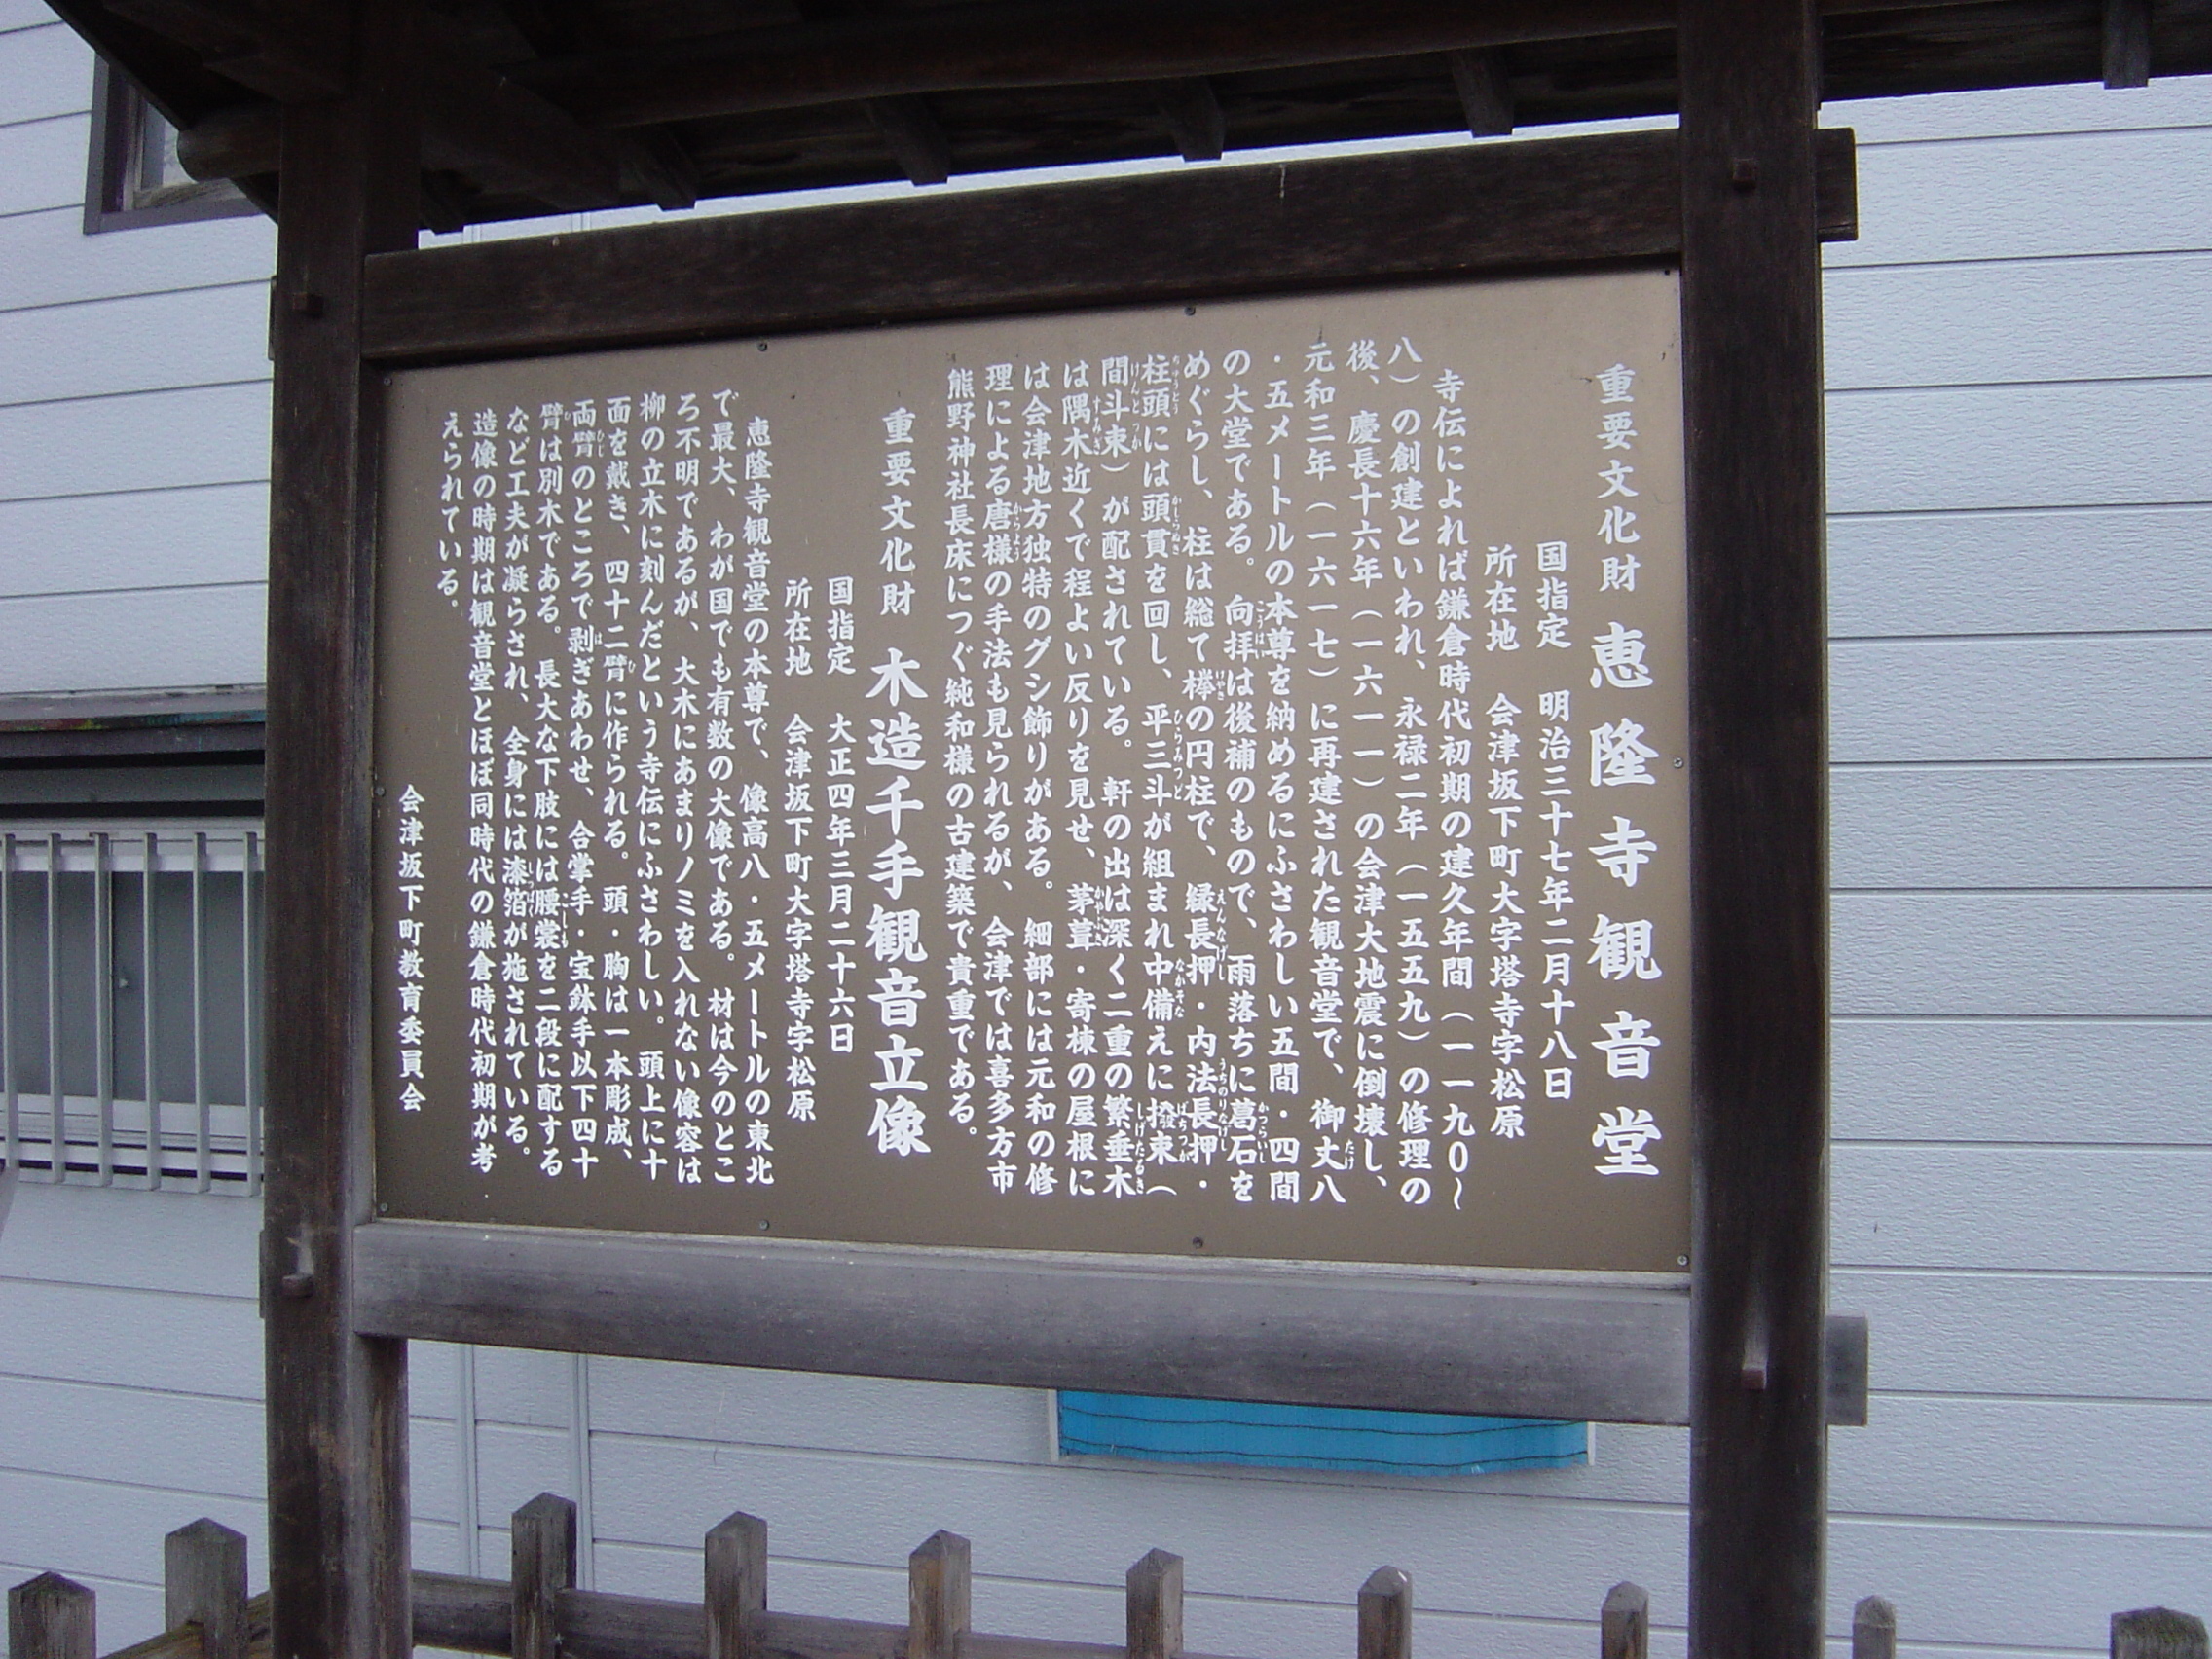 重要文化財 恵隆寺観音堂
国指定 明治三十七年二月十八日
所在地 会津坂下町大字塔寺字松原
寺伝によれば鎌倉時代初期の建久年間（一一九〇〜
八）の創建といわれ、永禄二年（一五五九）の修理の
後、慶長十六年（一六一一）の会津大地震に倒壊し、
元和三年（一六一七）に再建された観音堂で、御丈八
・五メートルの本尊を納めるにふさわしい五間・四間
の大堂である。向拝は後補のもので、雨落ちに葛石を
めぐらし、柱は総て欅の円柱で、縁長押・内法長押・
柱頭には頭貫を回し、平三斗が組まれ中備えに撥束（
間斗束）が配されている。軒の出は深く二重の繁垂木
は隅木近くで程よい反りを見せ、茅葺・寄棟の屋根に
は会津地方独特のグシ飾りがある。細部には元和の修
理による唐様の手法も見られるが、会津では喜多方市
熊野神社長床につぐ純和様の古建築で貴重である。
重要文化財 木造千手観音立像
国指定 大正四年三月二十六日
所在地 会津坂下町大字塔寺字松原
恵隆寺観音堂の本尊で、像高八・五メートルの東北
で最大、わが国でも有数の大像である。材は今のとこ
ろ不明であるが、大木にあまりノミを入れない像容は
柳の立木に刻んだという寺伝にふさわしい。頭上に十
面を戴き、四十二臂に作られる。頭・胸は一本彫成、
両臂のところで剥ぎあわせ、合掌手・宝鉢手以下四十
臂は別木である。長大な下肢には腰裳を二段に配する
など工夫が凝らされ、全身には漆箔が施されている。
造像の時期は観音堂とほぼ同時代の鎌倉時代初期が考
えられている。
会津坂下町教育委員会